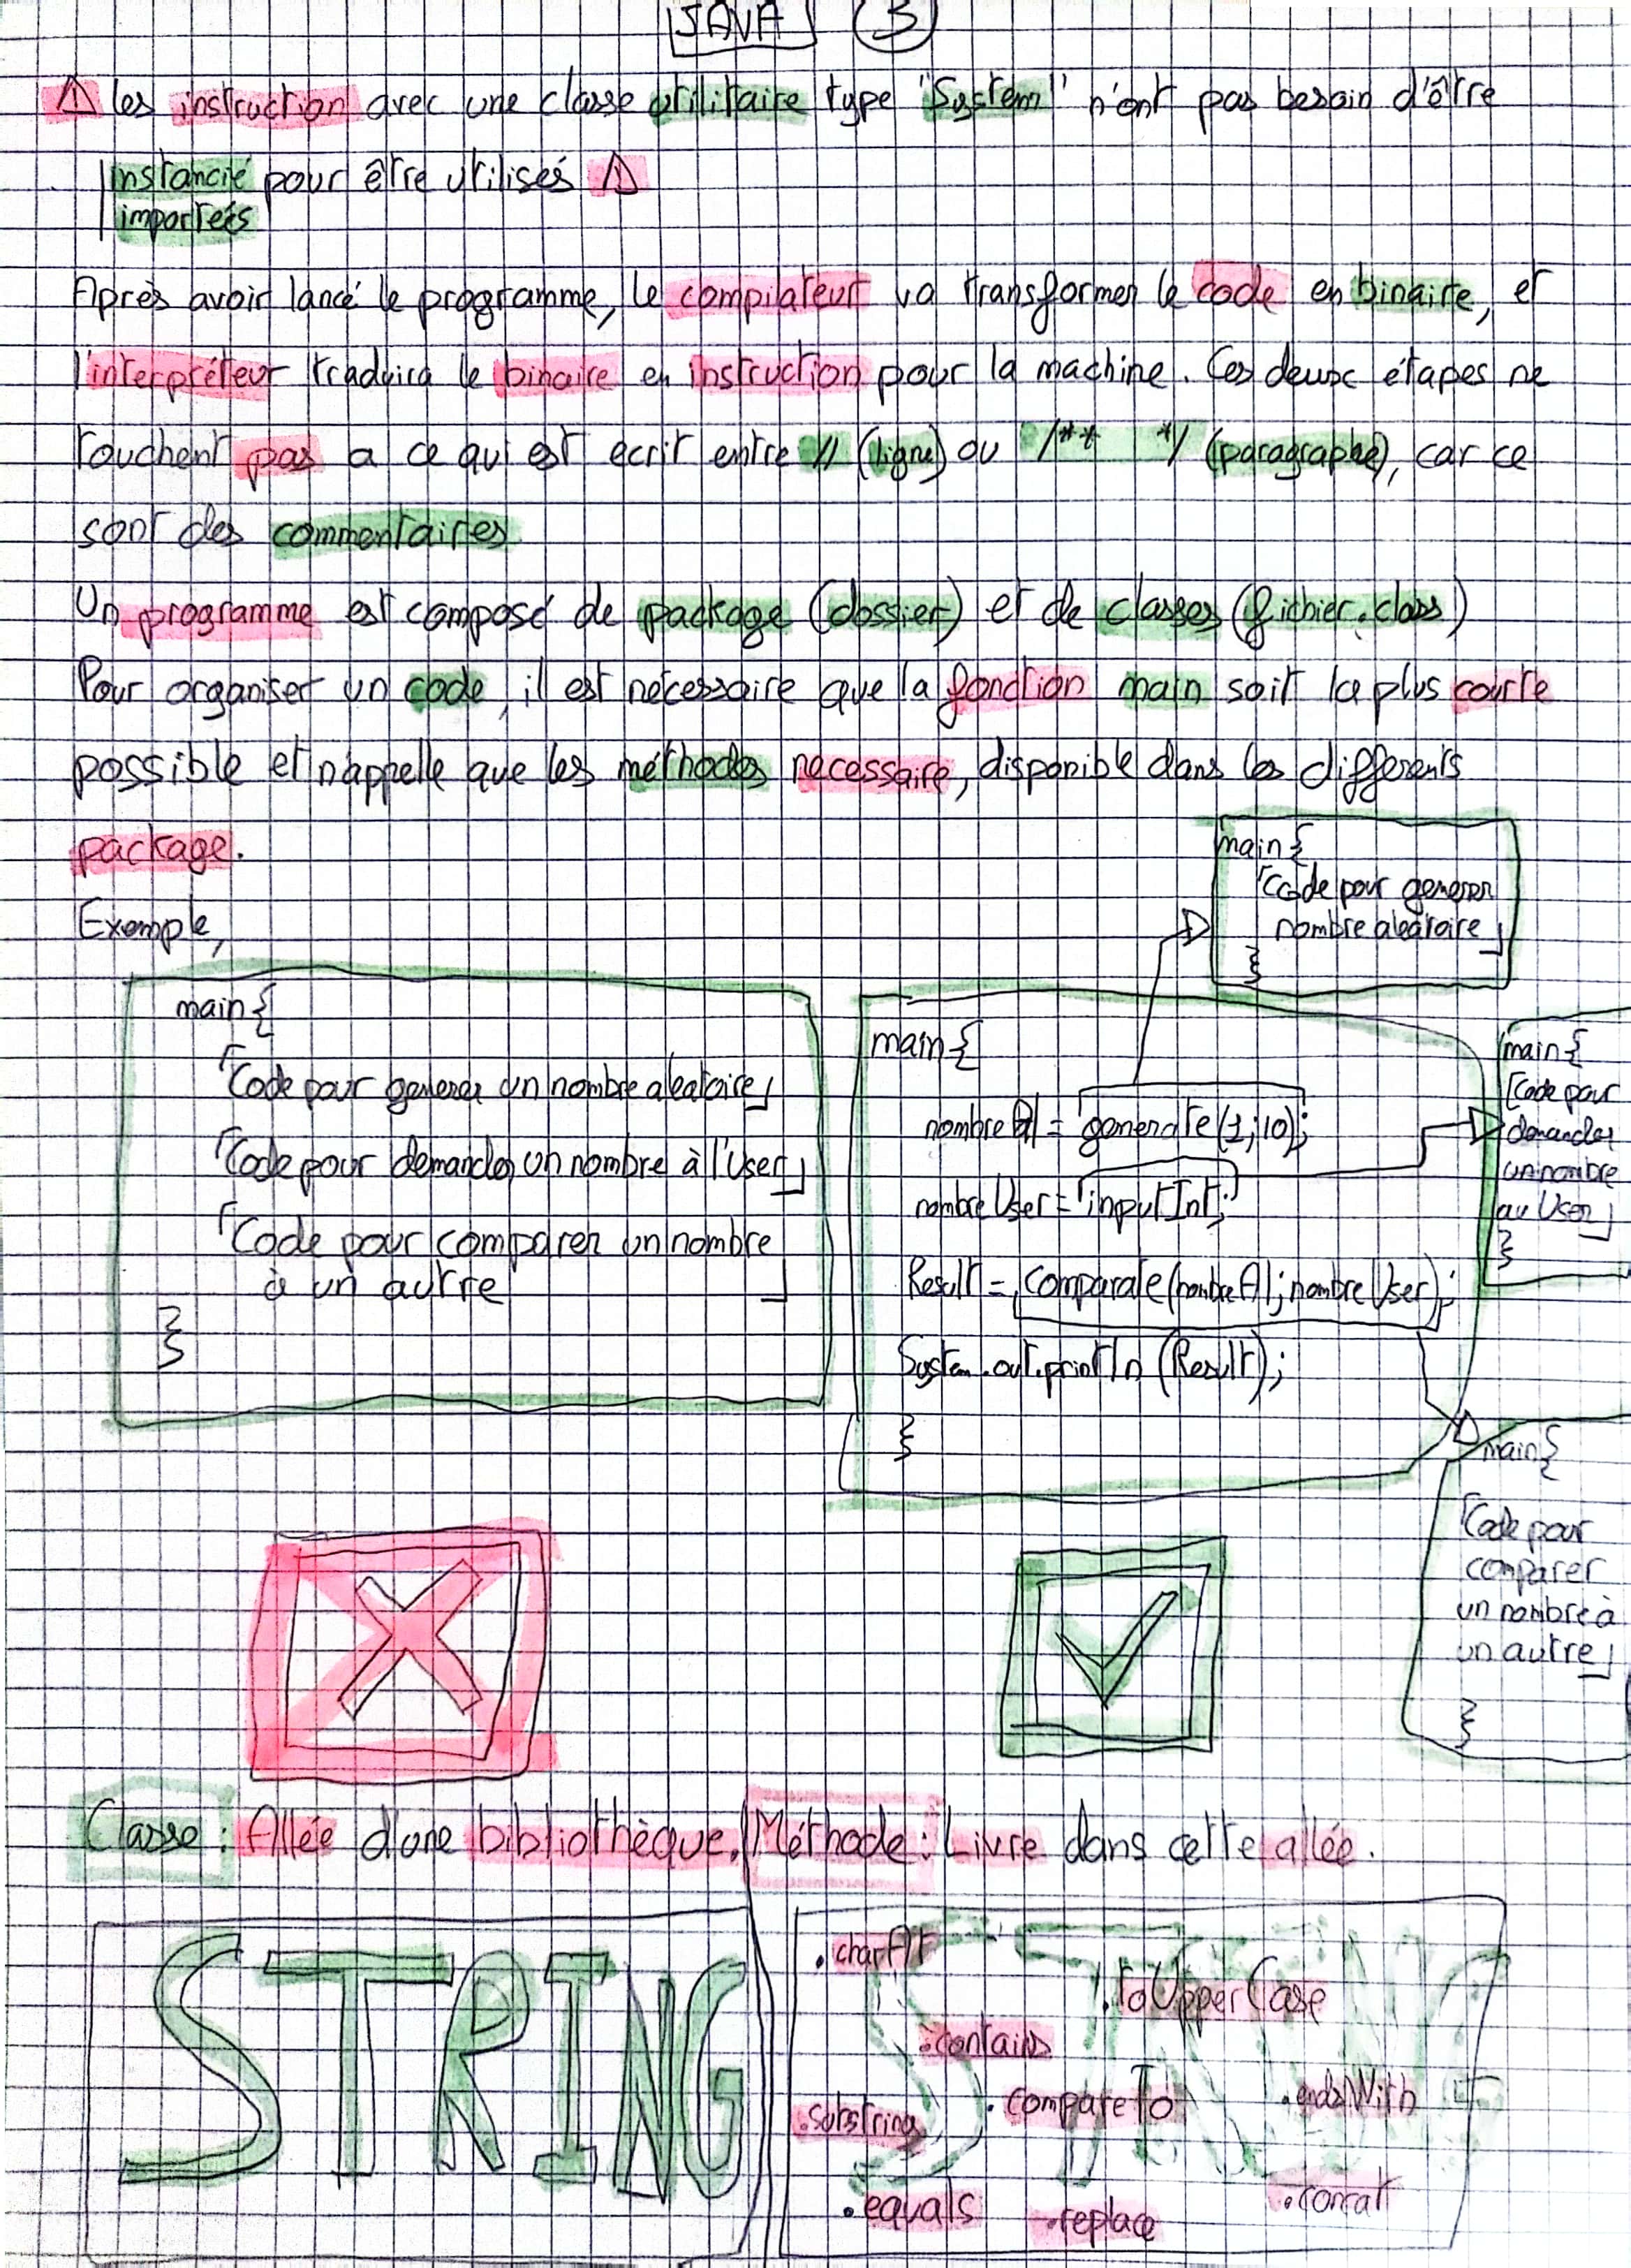 JAVA 3
⚠ les instruction avec une classe utilitaire type "System" n'ont pas besoin d'être
instancié pour être utilisés ⚠
importeés
Après avoir lancé le programme, le compilateur va transformer le code en binaire, et
l'interpréteur traduira le binaire en instruction pour la machine. Ces deux étapes ne
touchent pas a ce qui est ecrit entre // (ligne) ou /** */ (paragraphe), car ce
sont des commentaires
Un programme est composé de package (dossier) et de classes (fichier.class)
Pour organiser un code, il est nécessaire que la fonction main soit la plus courte
possible et n'appelle que les méthodes necessaire, disponible dans les differents
package.
Exemple,
main{
「Code pour generer un nombre aleatoire」
「Code pour demander un nombre à l'User」
「Code pour comparer un nombre
à un autre」
}
main{
nombreAl = generate(1;10);
nombreUser = inputInt;
Result = comparate(nombreAl;nombreUser);
System.out.println(Result);
}
main{
「Code pour generer
nombre aleatoire」
}
main{
「Code pour
demander
un nombre
au User」
}
main{
「Code pour
comparer
un nombre à
un autre」
}
Classe : Allée d'une bibliothèque. Méthode : Livre dans cette allée.
STRING
STRING
.charAt
.toUpperCase
.contains
.compareTo
.endsWith
.substring
.equals
.replace
.concat